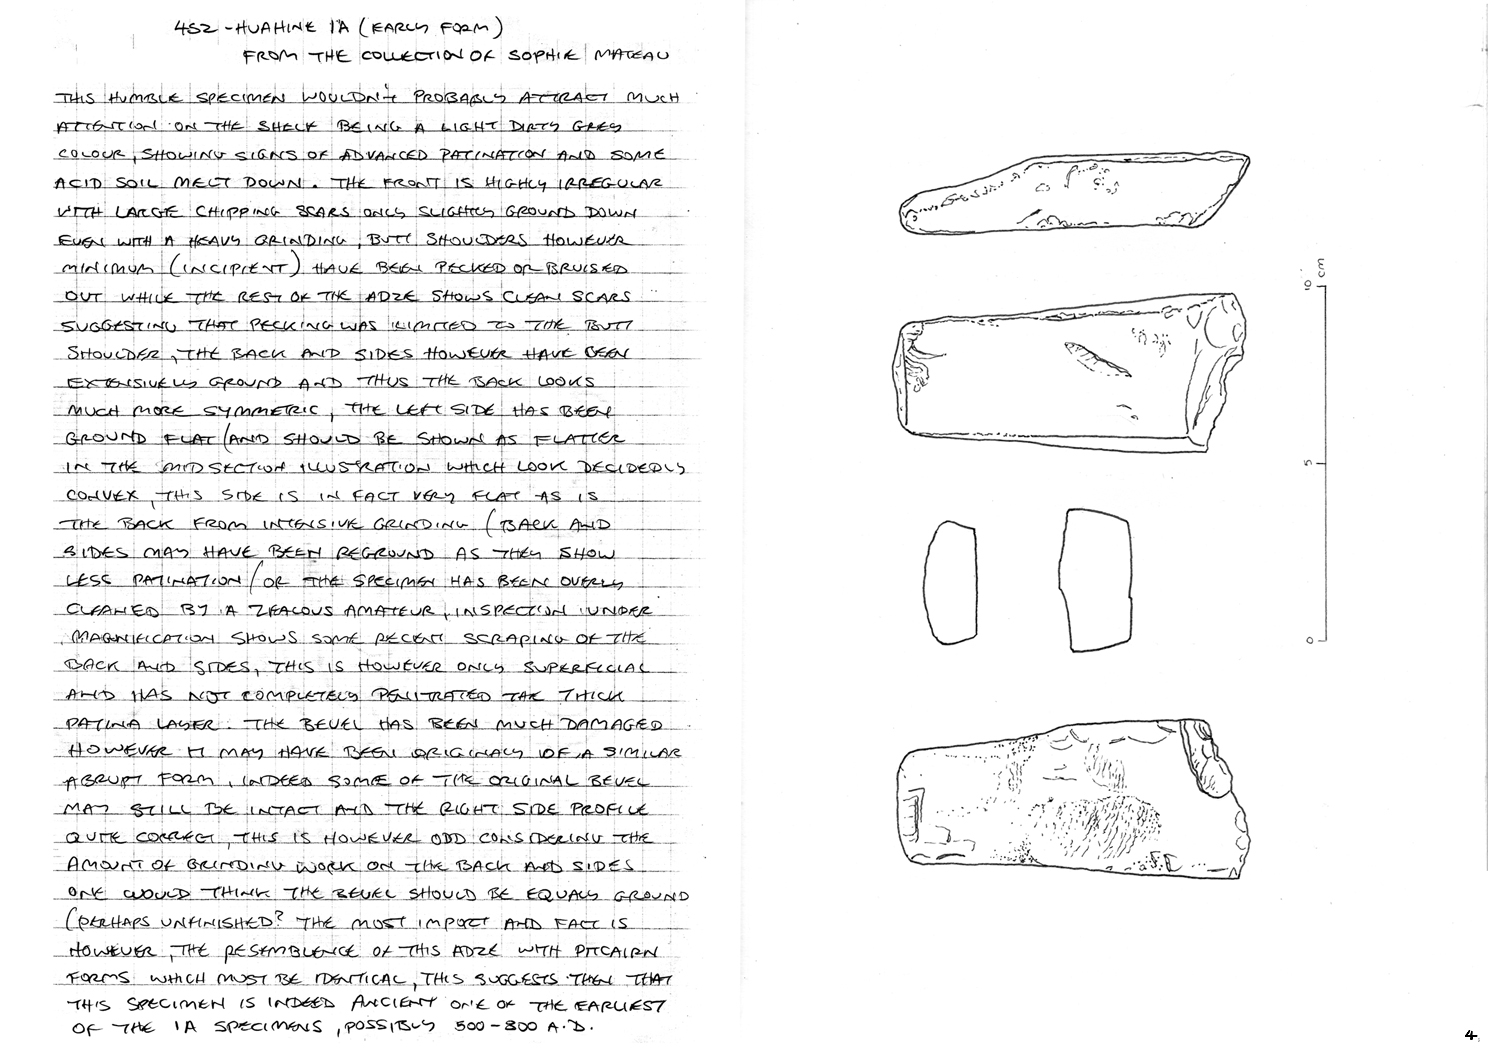 452 - HUAHINE 1A (EARLY FORM)
FROM THE COLLECTION OF SOPHIE MATEAU
THIS HUMBLE SPECIMEN WOULDN'T PROBABLY ATTRACT MUCH
ATTENTION ON THE SHELF BEING A LIGHT DIRTY GREY
COLOUR, SHOWING SIGNS OF ADVANCED PATINATION AND SOME
ACID SOIL MELT DOWN. THE FRONT IS HIGHLY IRREGULAR
WITH LARGE CHIPPING SCARS ONLY SLIGHTLY GROUND DOWN
EVEN WITH A HEAVY GRINDING, BUTT SHOULDERS HOWEVER
MINIMUM (INCIPIENT) HAVE BEEN PECKED OR BRUISED
OUT WHILE THE REST OF THE ADZE SHOWS CLEAN SCARS
SUGGESTING THAT PECKING WAS LIMITED TO THE BUTT
SHOULDER, THE BACK AND SIDES HOWEVER HAVE BEEN
EXTENSIVELY GROUND AND THUS THE BACK LOOKS
MUCH MORE SYMMETRIC, THE LEFT SIDE HAS BEEN
GROUND FLAT (AND SHOULD BE SHOWN AS FLATTER
IN THE MIDSECTION ILLUSTRATION WHICH LOOK DECIDEDLY
CONVEX, THIS SIDE IS IN FACT VERY FLAT AS IS
THE BACK FROM INTENSIVE GRINDING (BACK AND
SIDES MAY HAVE BEEN REGROUND AS THEY SHOW
LESS PATINATION / OR THE SPECIMEN HAS BEEN OVERLY
CLEANED BY A ZEALOUS AMATEUR, INSPECTION UNDER
MAGNIFICATION SHOWS SOME RECENT SCRAPING OF THE
BACK AND SIDES, THIS IS HOWEVER ONLY SUPERFICIAL
AND HAS NOT COMPLETELY PENITRATED THE THICK
PATINA LAYER. THE BEVEL HAS BEEN MUCH DAMAGED
HOWEVER IT MAY HAVE BEEN ORIGINALY OF A SIMILAR
ABRUPT FORM, INDEED SOME OF THE ORIGINAL BEVEL
MAY STILL BE INTACT AND THE RIGHT SIDE PROFILE
QUITE CORRECT, THIS IS HOWEVER ODD CONSIDERING THE
AMOUNT OF GRINDING WORK ON THE BACK AND SIDES
ONE WOULD THINK THE BEVEL SHOULD BE EQUALY GROUND
(PERHAPS UNFINISHED? THE MOST IMPORT AND FACT IS
HOWEVER, THE RESEMBLENCE OF THIS ADZE WITH PITCAIRN
FORMS WHICH MUST BE IDENTICAL, THIS SUGGESTS THEN THAT
THIS SPECIMEN IS INDEED ANCIENT ONE OF THE EARLIEST
OF THE 1A SPECIMENS, POSSIBLY 500-800 A.D.
10 cm
5
0
4